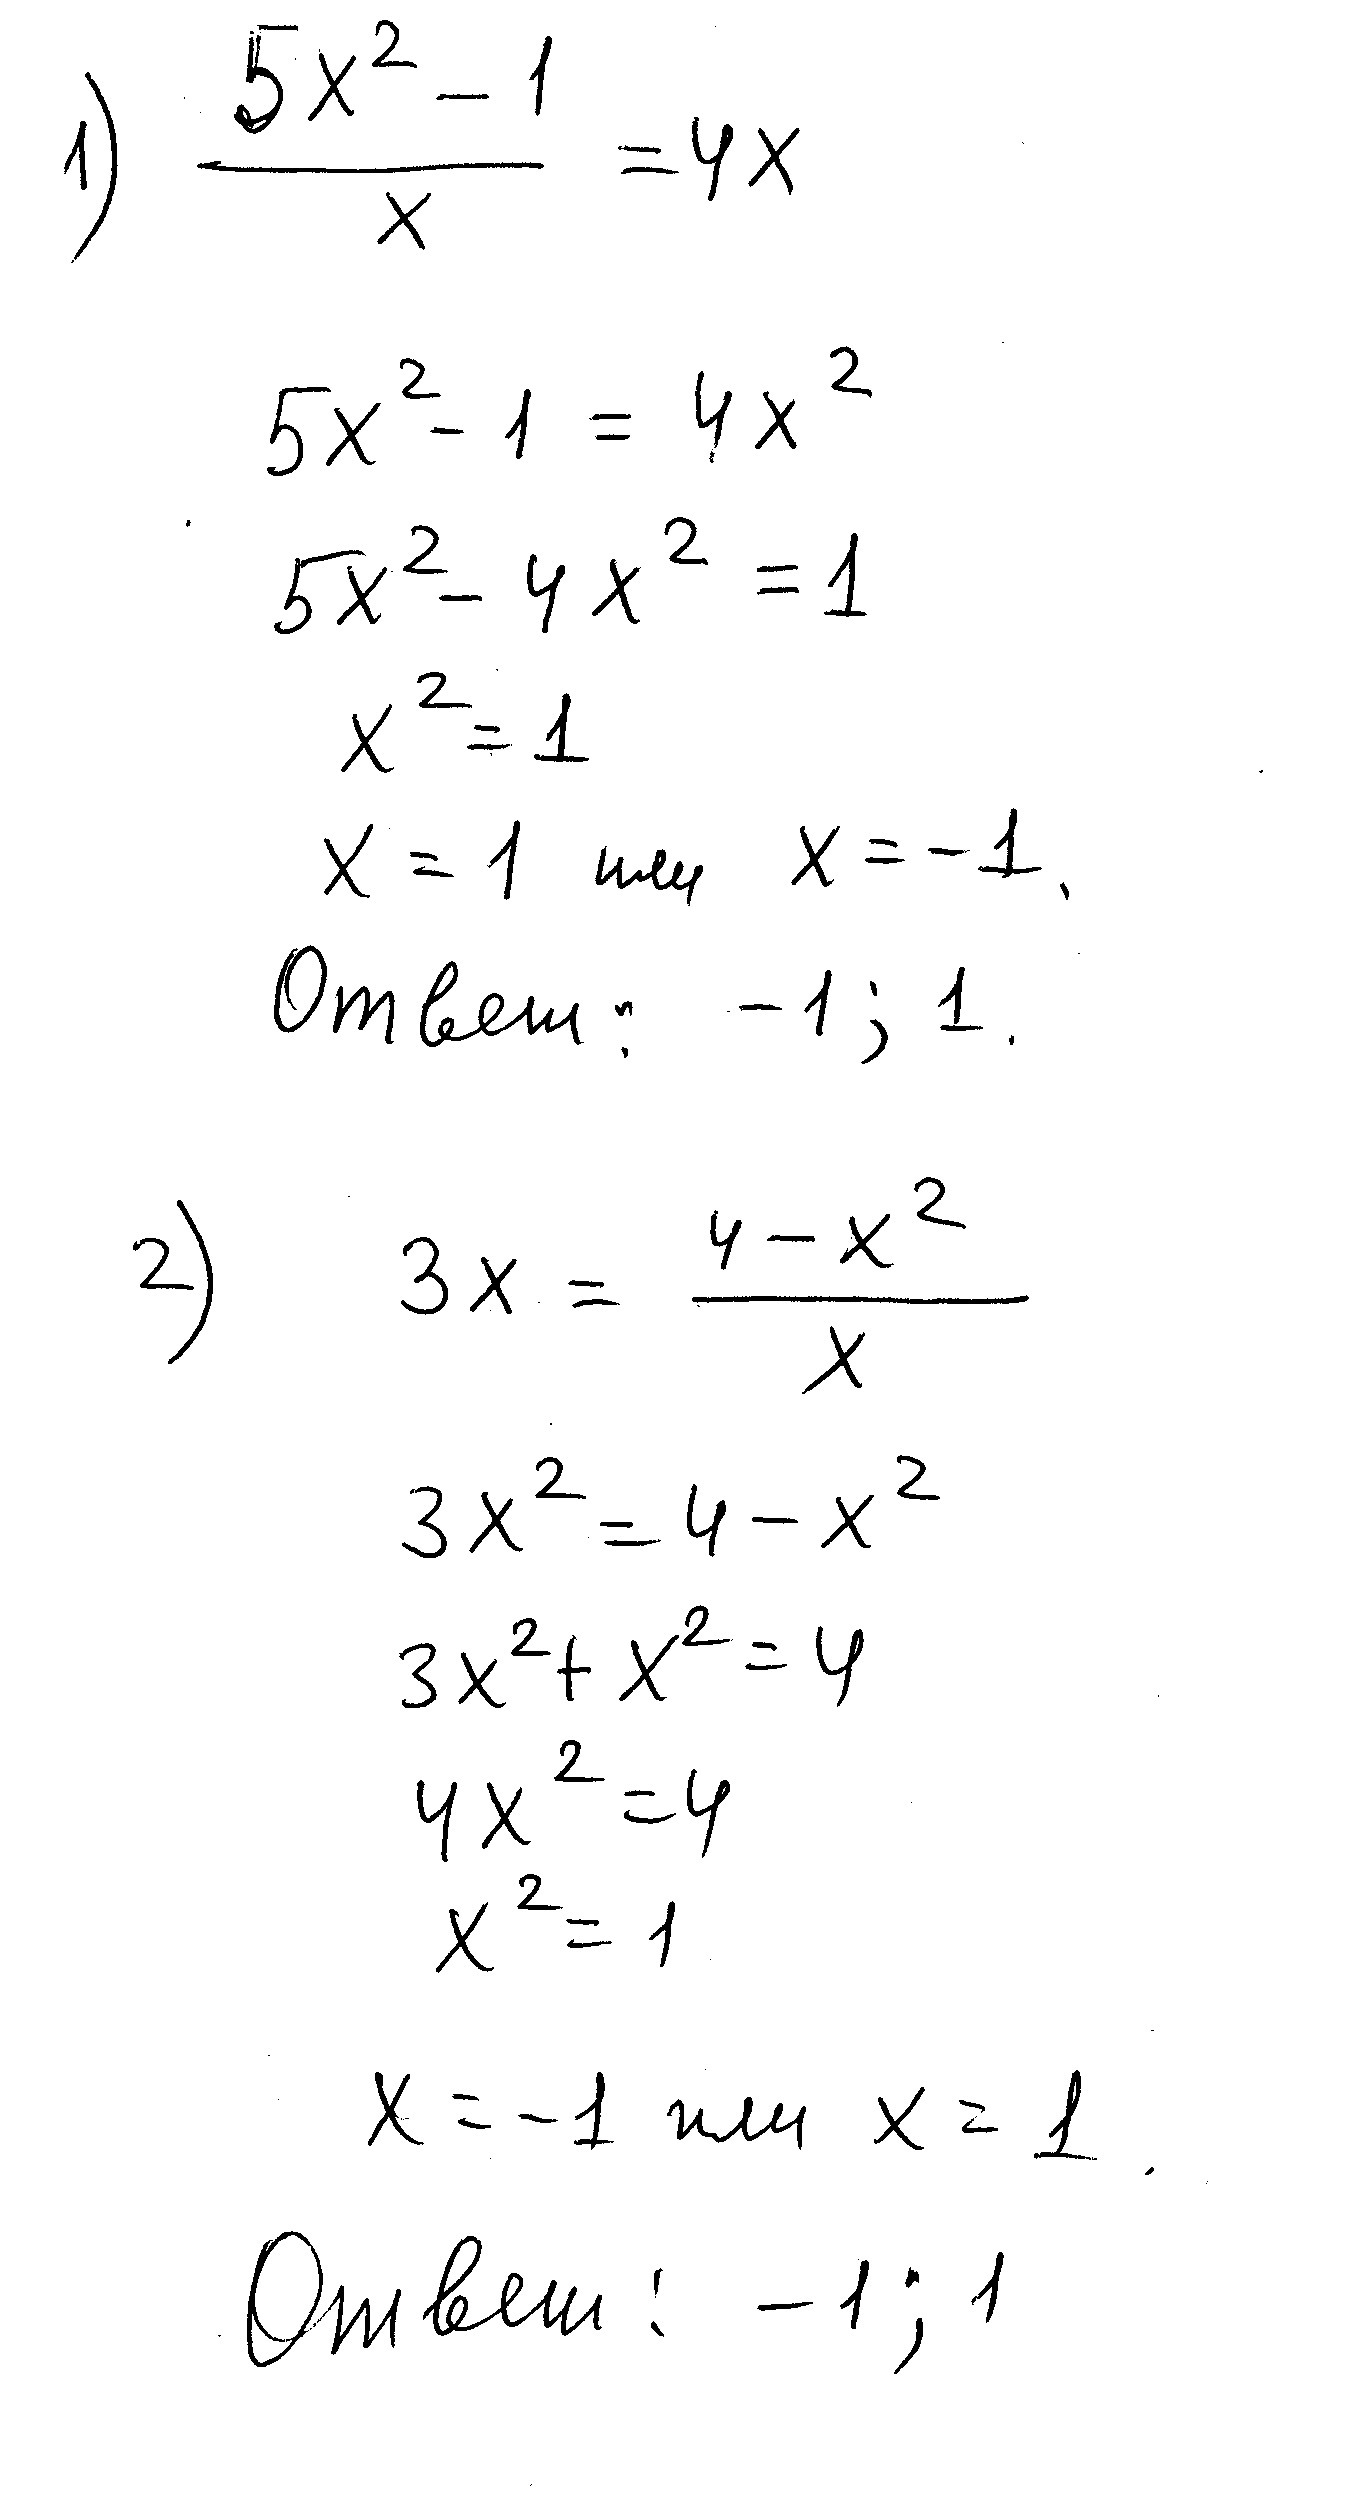 1) (5x² - 1)/x = 4x
5x² - 1 = 4x²
5x² - 4x² = 1
x² = 1
x = 1 или x = -1.
Ответ: -1; 1.
2) 3x = (4 - x²)/x
3x² = 4 - x²
3x² + x² = 4
4x² = 4
x² = 1
x = -1 или x = 1.
Ответ: -1; 1